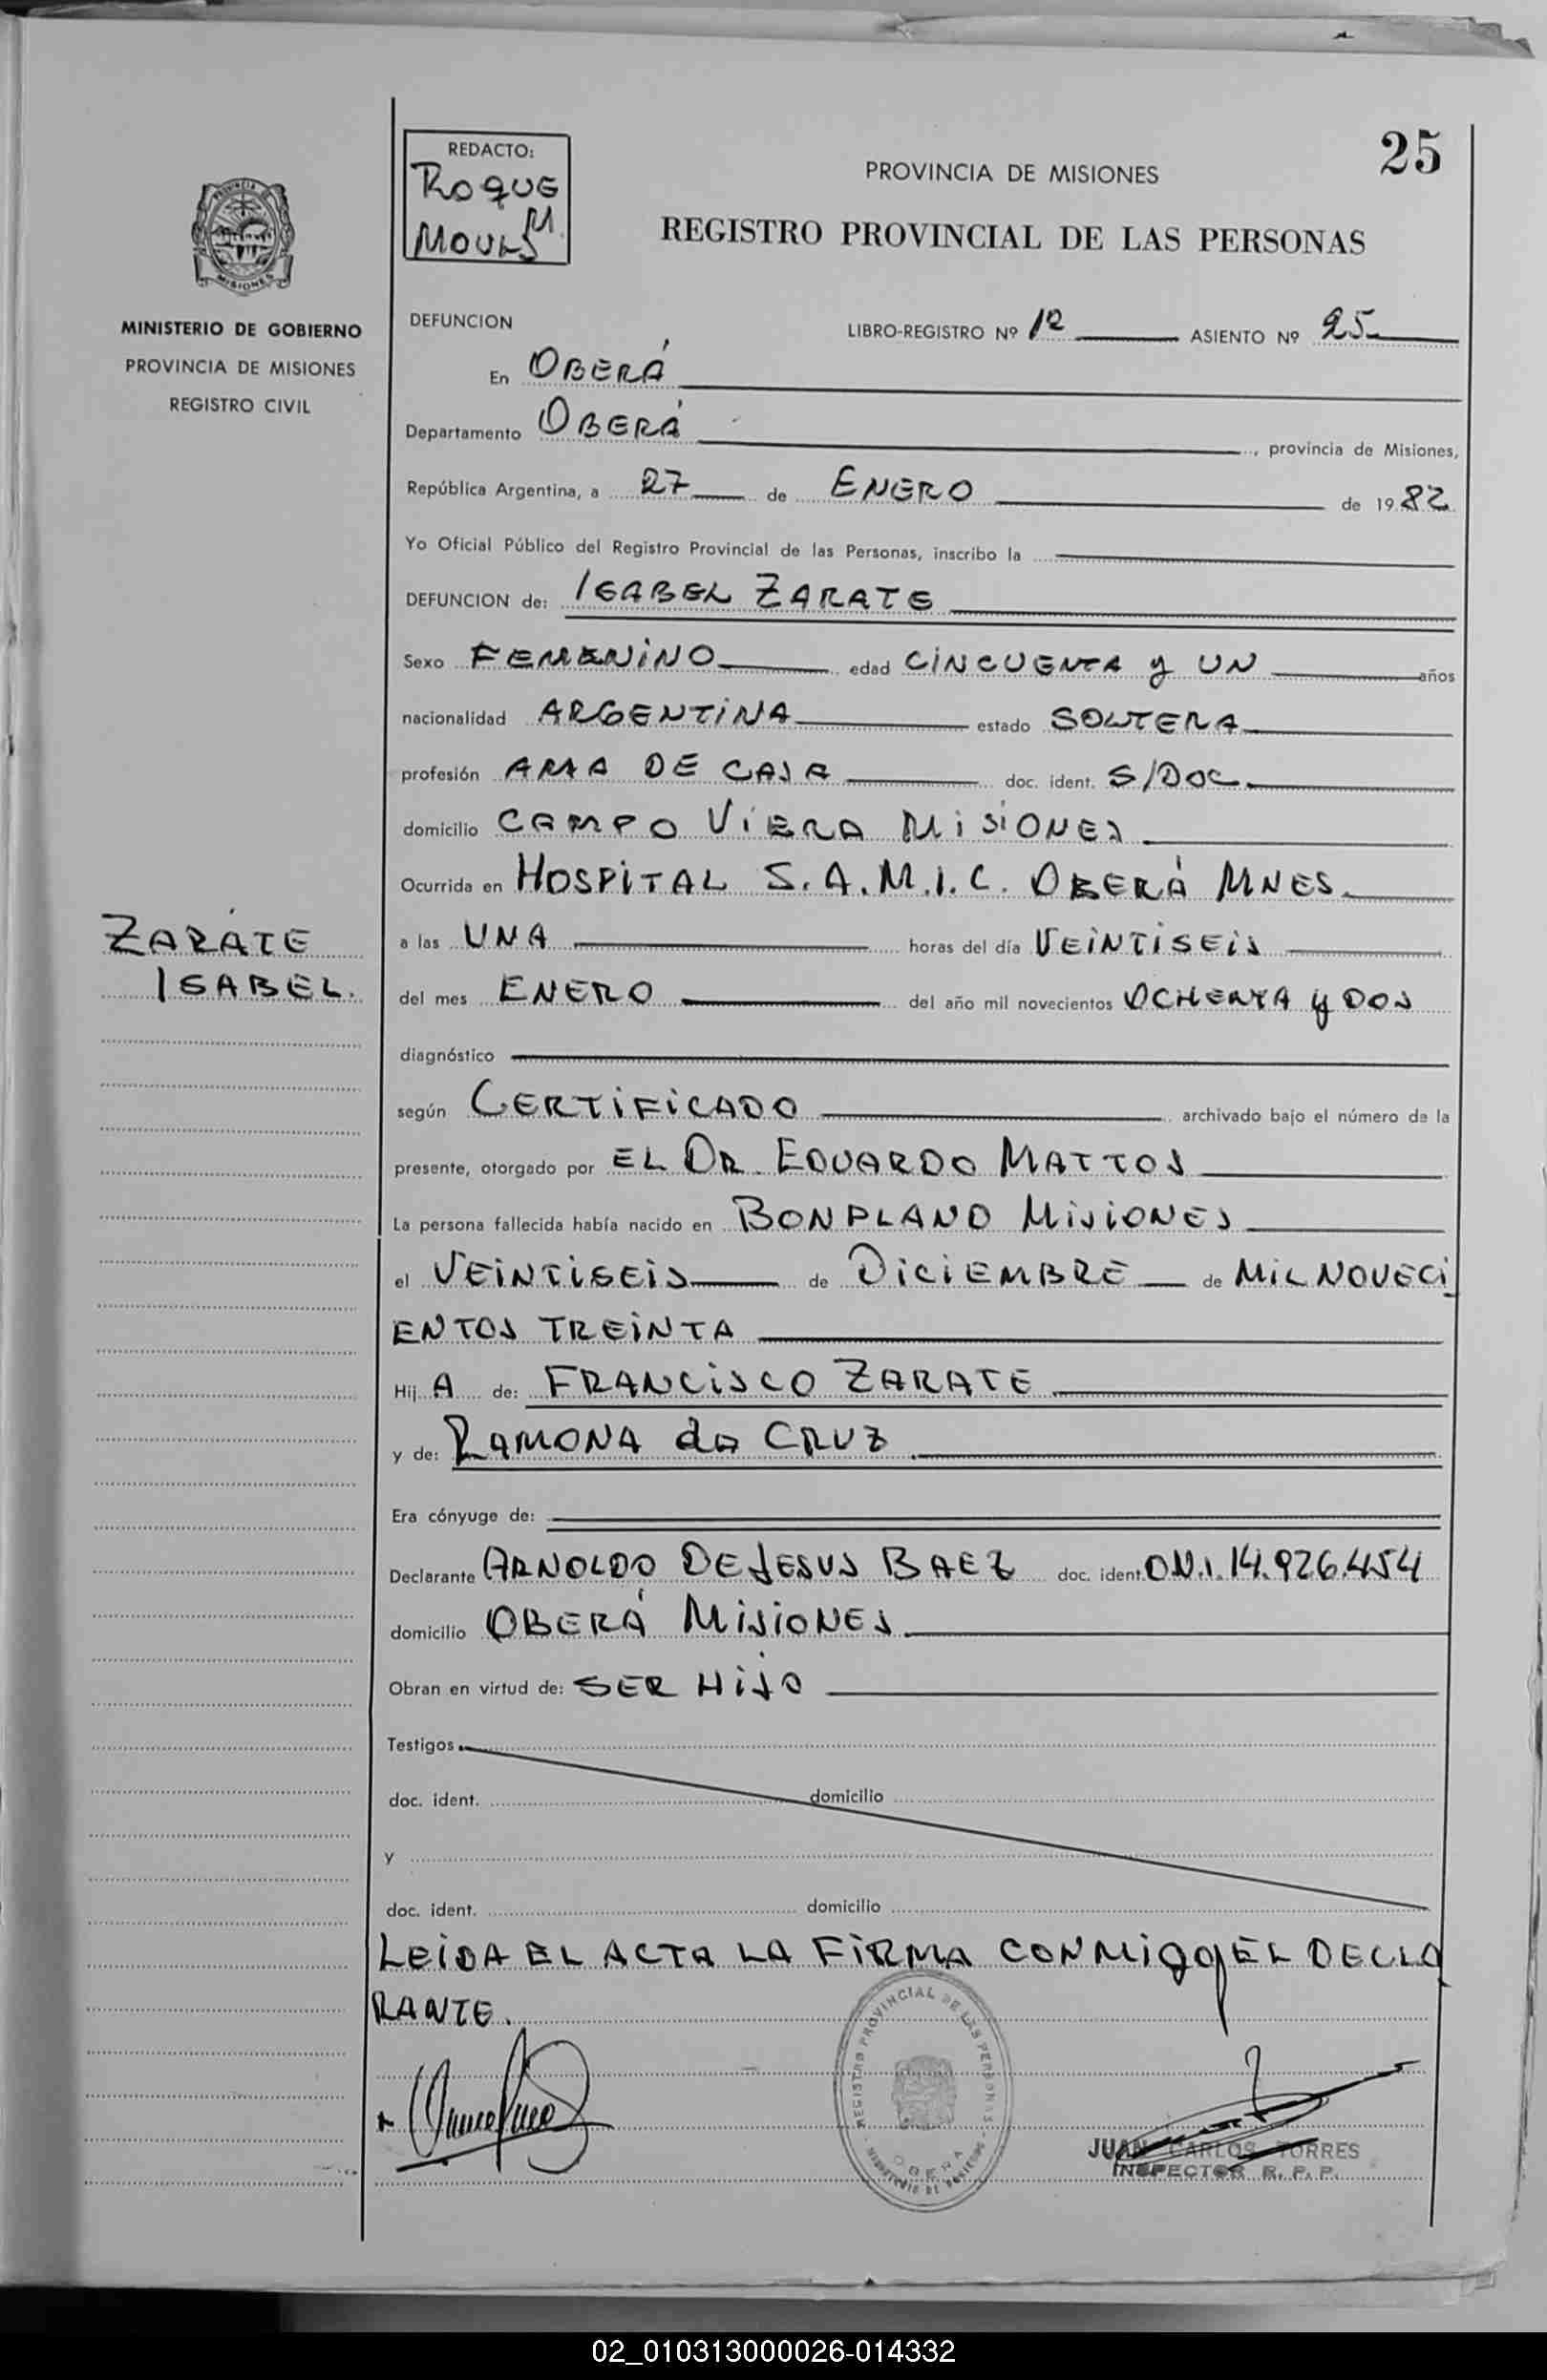 25
REDACTO:
ROQUE
PROVINCIA DE MISIONES
REGISTRO PROVINCIAL DE LAS PERSONAS
MINISTERIO DE GOBIERNO
PROVINCIA DE MISIONES
REGISTRO CIVIL
DEFUNCION
LIBRO-REGISTRO Nº 12 ASIENTO Nº 25
En OBERÁ
Departamento OBERÁ, provincia de Misiones,
República Argentina, a 27 de ENERO de 1982
Yo Oficial Público del Registro Provincial de las Personas, inscribo la
DEFUNCION de: ISABEL ZARATE
Sexo FEMENINO edad CINCUENTA y UN años
nacionalidad ARGENTINA estado SOLTERA
profesión AMA DE CASA doc. ident. S/DOC
domicilio CAMPO VIERA MISIONES
Ocurrida en HOSPITAL S.A.M.I.C. OBERÁ MNES.
ZARATE
ISABEL.
a las UNA horas del día VEINTISEIS
del mes ENERO del año mil novecientos OCHENTA y DOS
diagnóstico
según CERTIFICADO archivado bajo el número de la
presente, otorgado por EL DR. EDUARDO MATTOS
La persona fallecida había nacido en BONPLAND MISIONES
el VEINTISEIS de DICIEMBRE de MIL NOVECI
ENTOS TREINTA
Hij A de: FRANCISCO ZARATE
y de: RAMONA da CRUZ
Era cónyuge de:
Declarante ARNOLDO DE JESUS BAEZ doc. ident. D.N.I. 14.926.454
domicilio OBERÁ MISIONES
Obran en virtud de: SER HIJO
Testigos
doc. ident. domicilio
y
doc. ident. domicilio
LEIDA EL ACTA LA FIRMA CONMIGO EL DECLA
RANTE.
REGISTRO PROVINCIAL DE LAS PERSONAS
OBERA
JUAN CARLOS TORRES
INSPECTOR R. P. P.
02_010313000026-014332